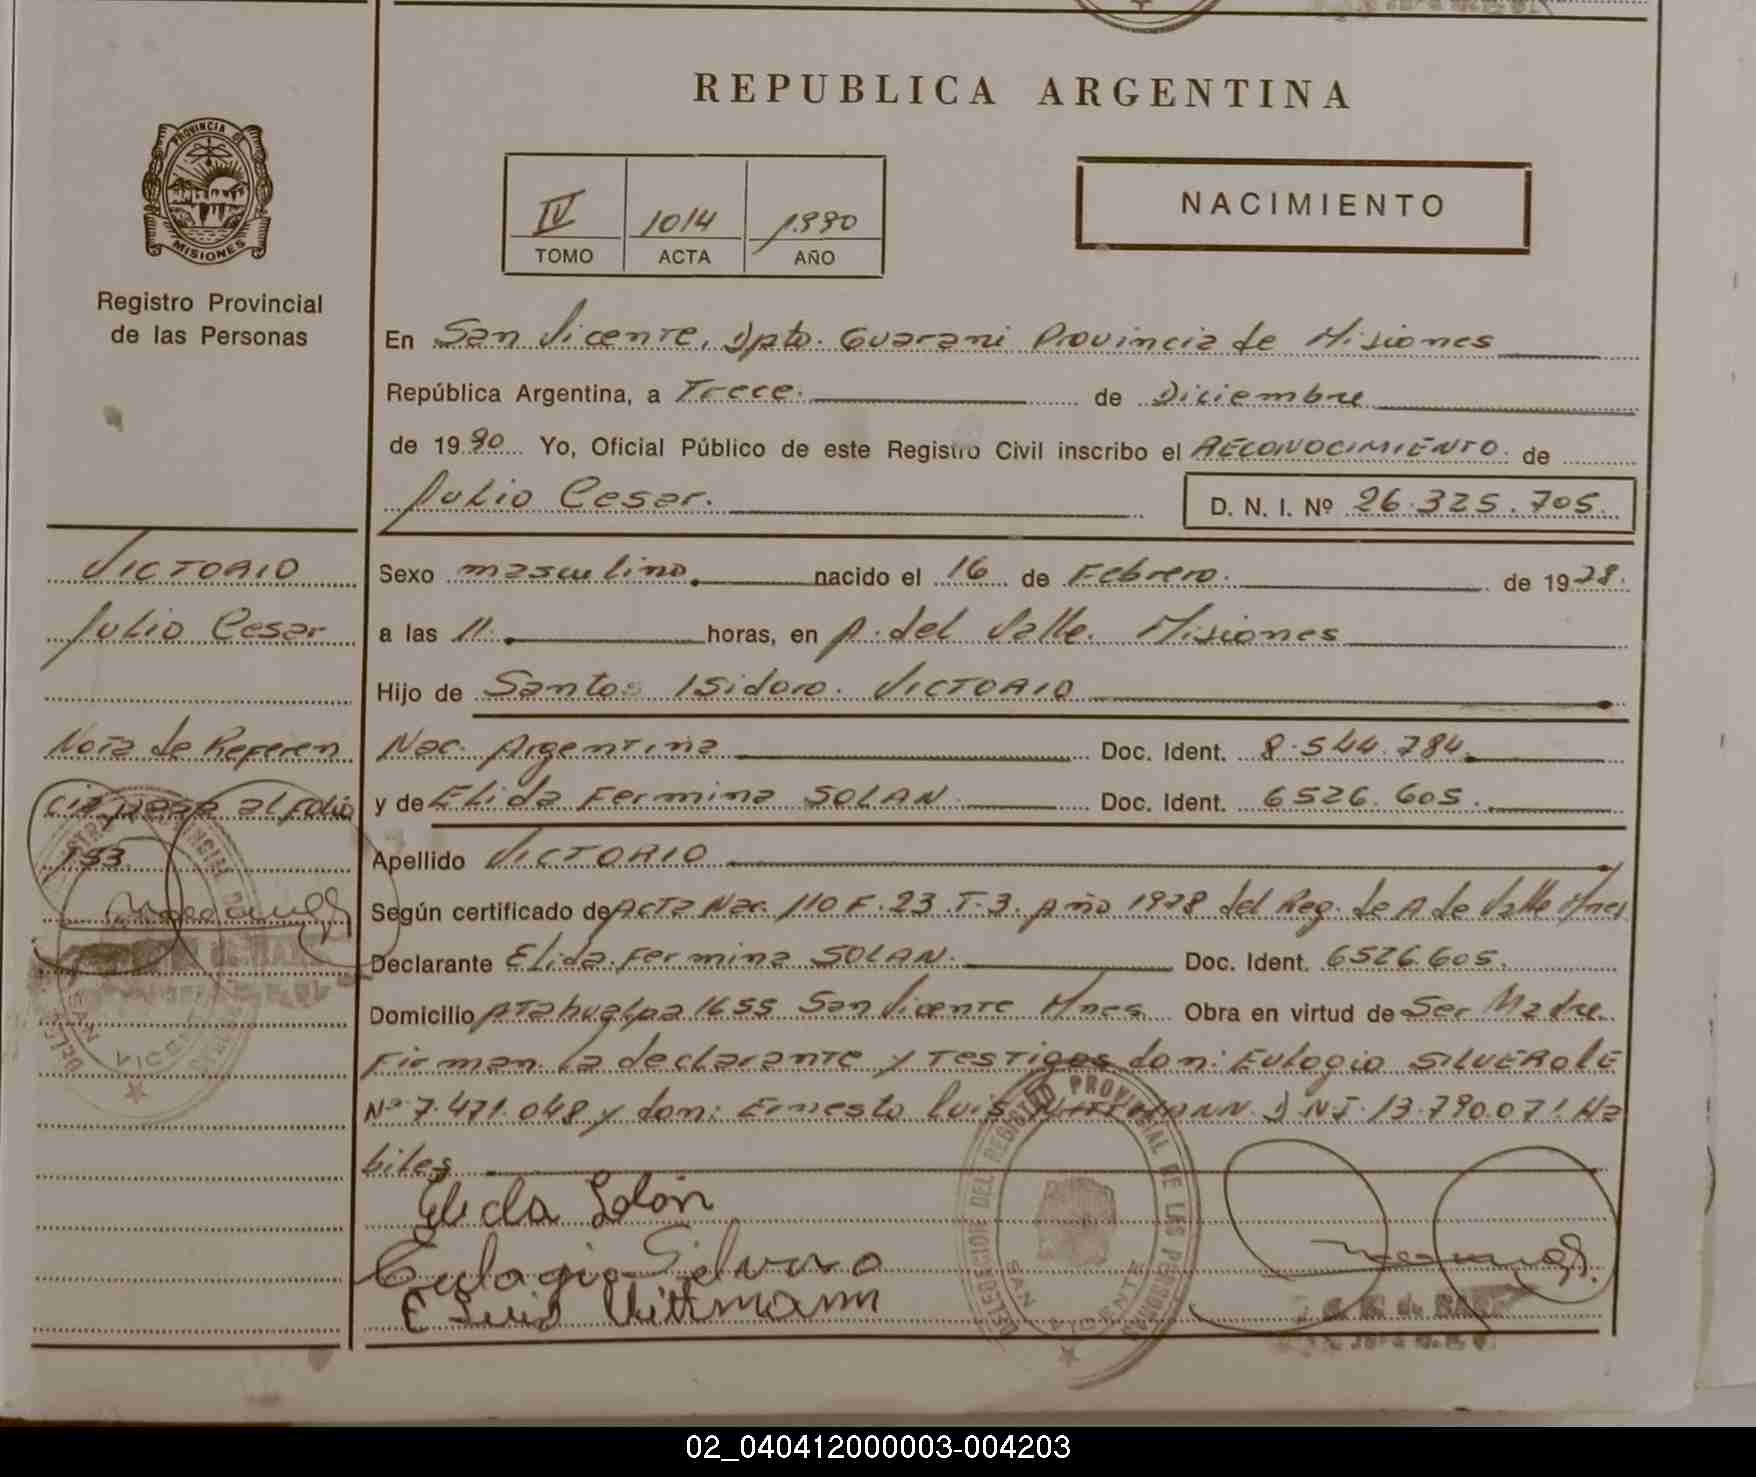 REPUBLICA ARGENTINA
PROVINCIA DE
MISIONES
Registro Provincial
de las Personas
IV 1014 1990
TOMO ACTA AÑO
NACIMIENTO
En San Vicente, Dpto. Guarani Provincia de Misiones
República Argentina, a Trece. de Diciembre
de 1990 Yo, Oficial Público de este Registro Civil inscribo el RECONOCIMIENTO. de
Julio Cesar. D. N. I. Nº 26.325.705.
VICTORIO
Julio Cesar
Nota de Referen
cia pasa al folio
153.
Sexo masculino. nacido el 16 de Febrero. de 1978.
a las 11. horas, en A. del Valle. Misiones
Hijo de Santos Isidoro. VICTORIO
Nac. Argentina Doc. Ident. 8.544.784.
y de Elida Fermina SOLAN. Doc. Ident. 6526.605.
Apellido VICTORIO
Según certificado de Acta Nac. 110 F. 23 T. 3. Año 1978 del Reg. de A de Valle Mnes
Declarante Elida Fermina SOLAN. Doc. Ident. 6526.605.
Domicilio Atahualpa 1655 San Vicente Mnes Obra en virtud de Ser Madre
Firman la declarante y Testigos don: Eulogio SILVERO LE
Nº 7.471.048 y don: Ernesto Luis WITTMANN D.N.I. 13.790.071 Ha
biles
DELEGACION DEL REGISTRO PROVINCIAL DE LAS PERSONAS
SAN VICENTE
Elida Solán
Eulogio Silvero
E Luis Wittmann
02_040412000003-004203